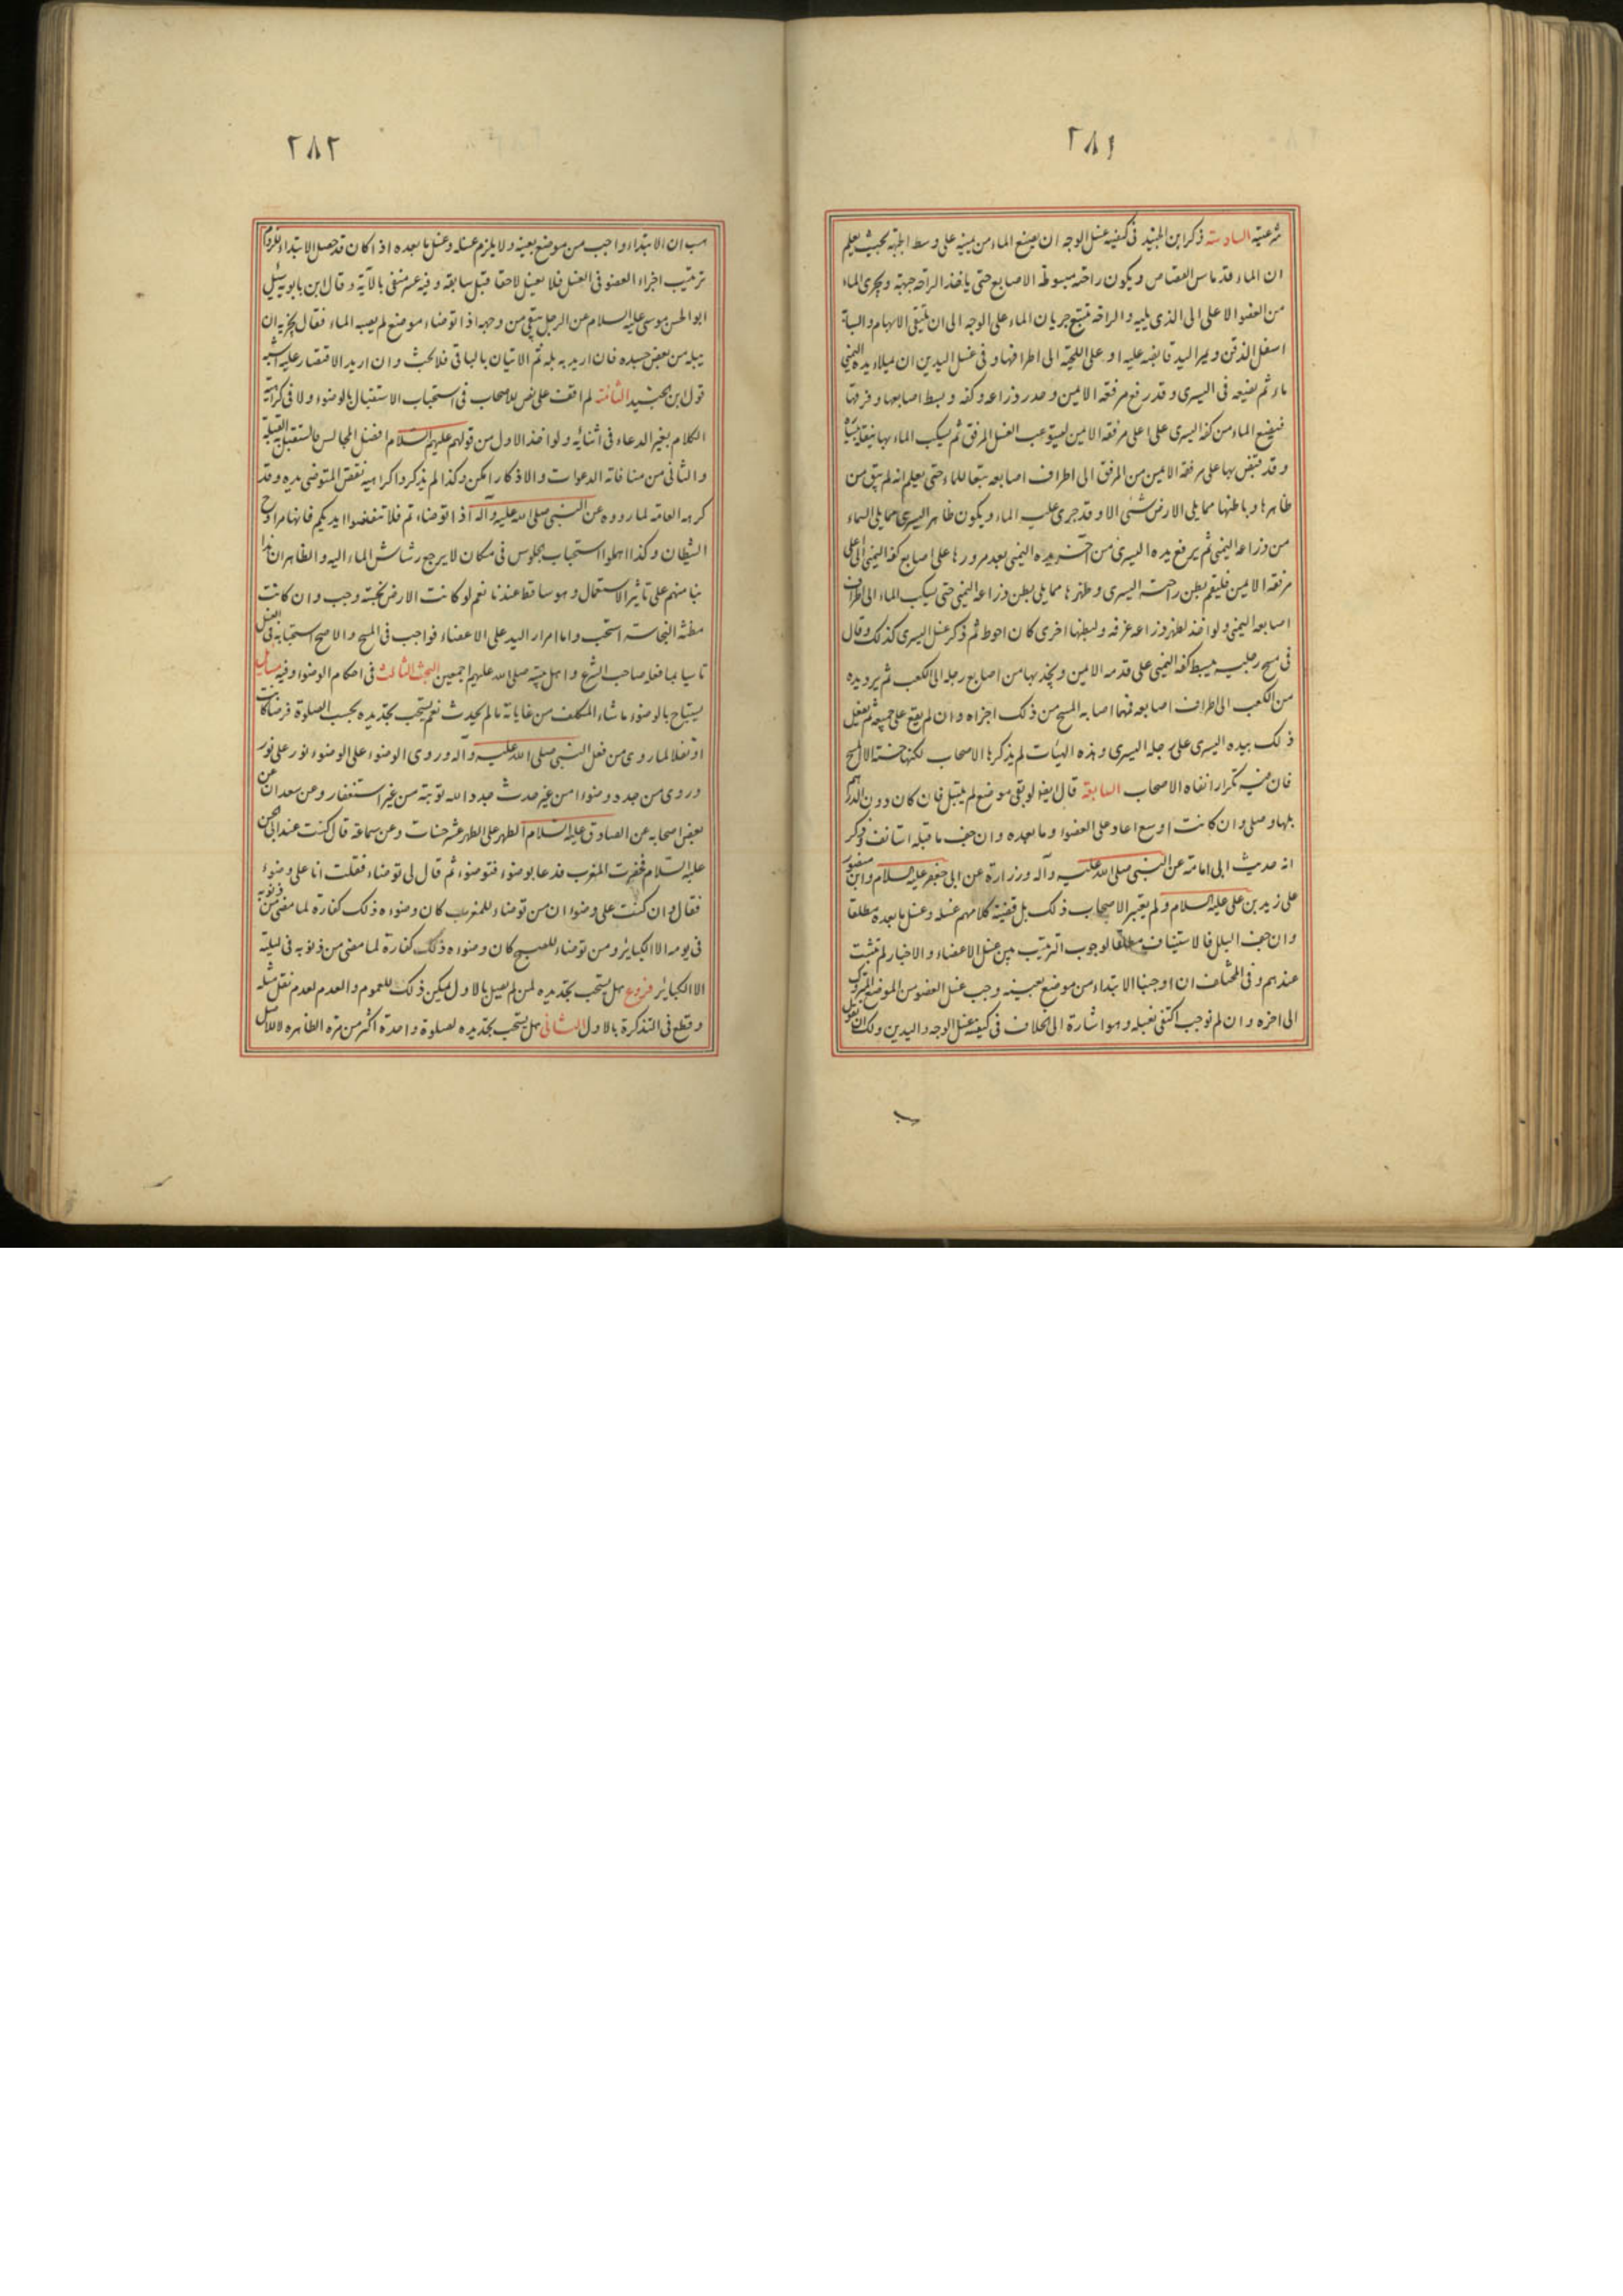 ٢٨١
شرعيته السادسة ذكر ابن الجنيد في كيفية غسل الوجه ان يضع الماء من يمينه على وسط الجبهة بحيث يعلم
ان الماء قد ماس القصاص ويكون راحته مبسوطة الاصابع حتى ياخذ الراحة جبهته ويجرى الماء
من العضو الاعلى الى الذي يليه والراحة تتبع جريان الماء على الوجه الى ان يلتقى الابهام والسبابة
اسفل الذقن ويمر اليد قابضه عليه او على اللحية الى اطرافها وفي غسل اليدين ان يملأ يده اليمنى
ماء ثم يضعه في اليسرى وقد رفع مرفقه الايمن وحدر ذراعه وكفه وبسط اصابعها وفرقها
فيضع الماء من كفه اليسرى على اعلى مرفقه الايمن ليستوعب الغسل المرفق ثم يسكب الماء بها
وقد قبض بها على مرفقه الايمن من المرفق الى اطراف اصابعه متبعا للماء حتى يعلم انه لم يبق من
ظاهرها وباطنها مما يلي الارض شئ الا وقد جرى عليه الماء ويكون ظاهر اليسرى مما يلي السماء
من ذراعه اليمنى ثم يرفع يده اليسرى من آخر يده اليمنى بعد مرورها على اصابع كفه اليمنى الى اعلى
مرفقه الايمن فليقم بطن راحته اليسرى وظهرها مما يلي بطن ذراعه اليمنى حتى يسكب الماء الى اطراف
اصابعه اليمنى ولو اخذ لظهر ذراعه غرفه ولبطنها اخرى كان احوط ثم ذكر غسل اليسرى كذلك وقال
في مسح رجليه يبسط كفه اليمنى على قدمه الايمن ويجذبها من اصابع رجله الى الكعب ثم يرد يده
من الكعب الى اطراف اصابعه فمهما اصابه المسح من ذلك اجزاه وان لم يقع على جميعه ثم يفعل
ذلك بيده اليسرى على رجله اليسرى وهذه الهيات لم يذكرها الاصحاب لكنها حسنة الا المسح
فان فيه تكرارا نفاه الاصحاب السابعة قال ايضا لو بقى موضع لم يبتل فان كان دون الدرهم
بلها وصلى وان كانت اوسع اعاد على العضو وما بعده وان جف ما قبله استانف وذكر
انه حديث ابي امامة عن النبي صلى الله عليه وآله وزرارة عن ابي جعفر عليه السلام وابن منصور
على زيد بن علي عليه السلام ولم يعتبر الاصحاب ذلك بل قضية كلامهم غسله وغسل ما بعده مطلقا
وان جف البلل فالاستيناف مطلقا لوجوب الترتيب بين غسل الاعضاء والاخبار لم تثبت
عندهم وفي المختلف ان اوجبنا الابتداء من موضع بعينه وجب غسل العضو من الموضع المتروك
الى اخره وان لم نوجب اكتفى بغسله وهو اشارة الى الخلاف في كيفية غسل الوجه واليدين ولك ان تقول
هب
٢٨٢
هب ان الابتداء واجب من موضع بعينه ولا يلزم غسله وغسل ما بعده اذا كان قد حصل الابتداء للزوم
ترتيب اجزاء العضو في الغسل فلا يغسل لاحقا قبل سابقه وفيه عسر منفى بالآية وقال ابن بابويه سئل
ابو الحسن موسى عليه السلام عن الرجل يبقى من وجهه اذا توضاء موضع لم يصبه الماء فقال يجزيه ان
يبله من بعض جسده فان اريد به بله ثم الاتيان بالباقي فلا بحث وان اريد الاقتصار عليه اشبه
قول ابن الجنيد الثامنة لم اقف على نص للاصحاب في استحباب الاستقبال بالوضوء ولا في كراهة
الكلام بغير الدعاء في اثنائه ولو اخذ الاول من قولهم عليهم السلام افضل المجالس ما استقبل به القبلة
والثاني من منافاته الدعوات والاذكار امكن وكذا لم يذكروا كراهية نفض المتوضى يديه وقد
كرهه العامة لما رووه عن النبي صلى الله عليه وآله اذا توضاءتم فلا تنفضوا ايديكم فانها مراوح
الشيطان وكذا اهملوا استحباب الجلوس في مكان لا يرجع رشاش الماء اليه والظاهر ان هذا
بنا منهم على تاثير الاستعمال وهو ساقط عندنا نعم لو كانت الارض نجسة وجب وان كانت
مظنة النجاسة استحب واما امرار اليد على الاعضاء فواجب في المسح والاصح استحبابه في الغسل
تاسيا بما فعله صاحب الشرع واهل بيته صلى الله عليهم اجمعين البحث الثالث في احكام الوضوء وفيه مسائل
يستباح بالوضوء ما شاء المكلف من غاياته ما لم يحدث نعم يستحب تجديده بحسب الصلوة فرضا كانت
او نفلا لما روى من فعل النبي صلى الله عليه وآله وروى الوضوء على الوضوء نور على نور
وروى من جدد وضوءا من غير حدث جدد الله توبته من غير استغفار وعن سعدان عن
بعض اصحابه عن الصادق عليه السلام الطهر على الطهر عشر حسنات وعن سماعة قال كنت عند ابي الحسن
عليه السلام فحضرت المغرب فدعا بوضوء فتوضوء ثم قال لي توضاء فقلت انا على وضوء
فقال وان كنت على وضوء ان من توضاء للمغرب كان وضوءه ذلك كفارة لما مضى من ذنوبه
في يومه الا الكبائر ومن توضاء للصبح كان وضوءه ذلك كفارة لما مضى من ذنوبه في ليلته
الا الكبائر فروع هل يستحب تجديده لمن لم يصل بالاول يمكن ذلك للعموم والعدم لعدم نقل مثله
وقطع في التذكرة بالاول الثاني هل يستحب تجديده لصلوة واحدة اكثر من مرة الظاهر لا للاصل